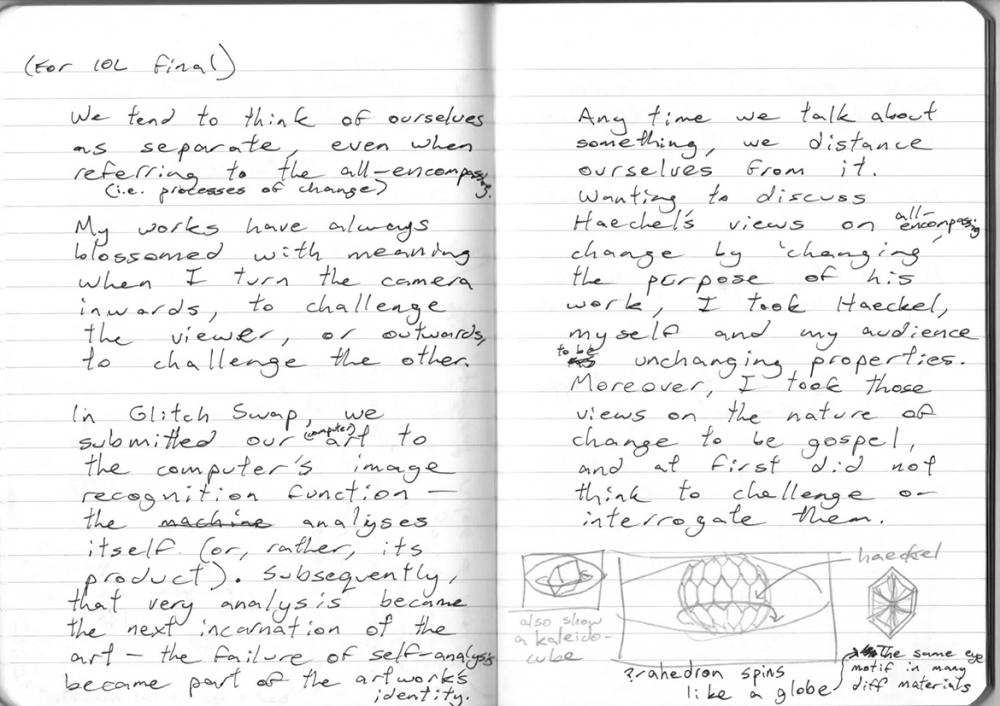 (For 102 final)
We tend to think of ourselves
as separate, even when
referring to the all-encompassing.
(i.e. processes of change)
My works have always
blossomed with meaning
when I turn the camera
inwards, to challenge
the viewer, or outwards,
to challenge the other.
In Glitch Swap, we
submitted our (computer) art to
the computer's image
recognition function –
the machine analyses
itself (or, rather, its
product). Subsequently,
that very analysis became
the next incarnation of the
art – the failure of self-analysis
became part of the artwork's
identity.
Any time we talk about
something, we distance
ourselves from it.
Wanting to discuss
Haeckel's views on all-encompassing
change by 'changing'
the purpose of his
work, I took Haeckel,
myself and my audience
to be unchanging properties.
Moreover, I took those
views on the nature of
change to be gospel,
and at first did not
think to challenge or
interrogate them.
haeckel
also show
a kaleido-
cube
?rahedron spins
like a globe
the same eye
motif in many
diff materials